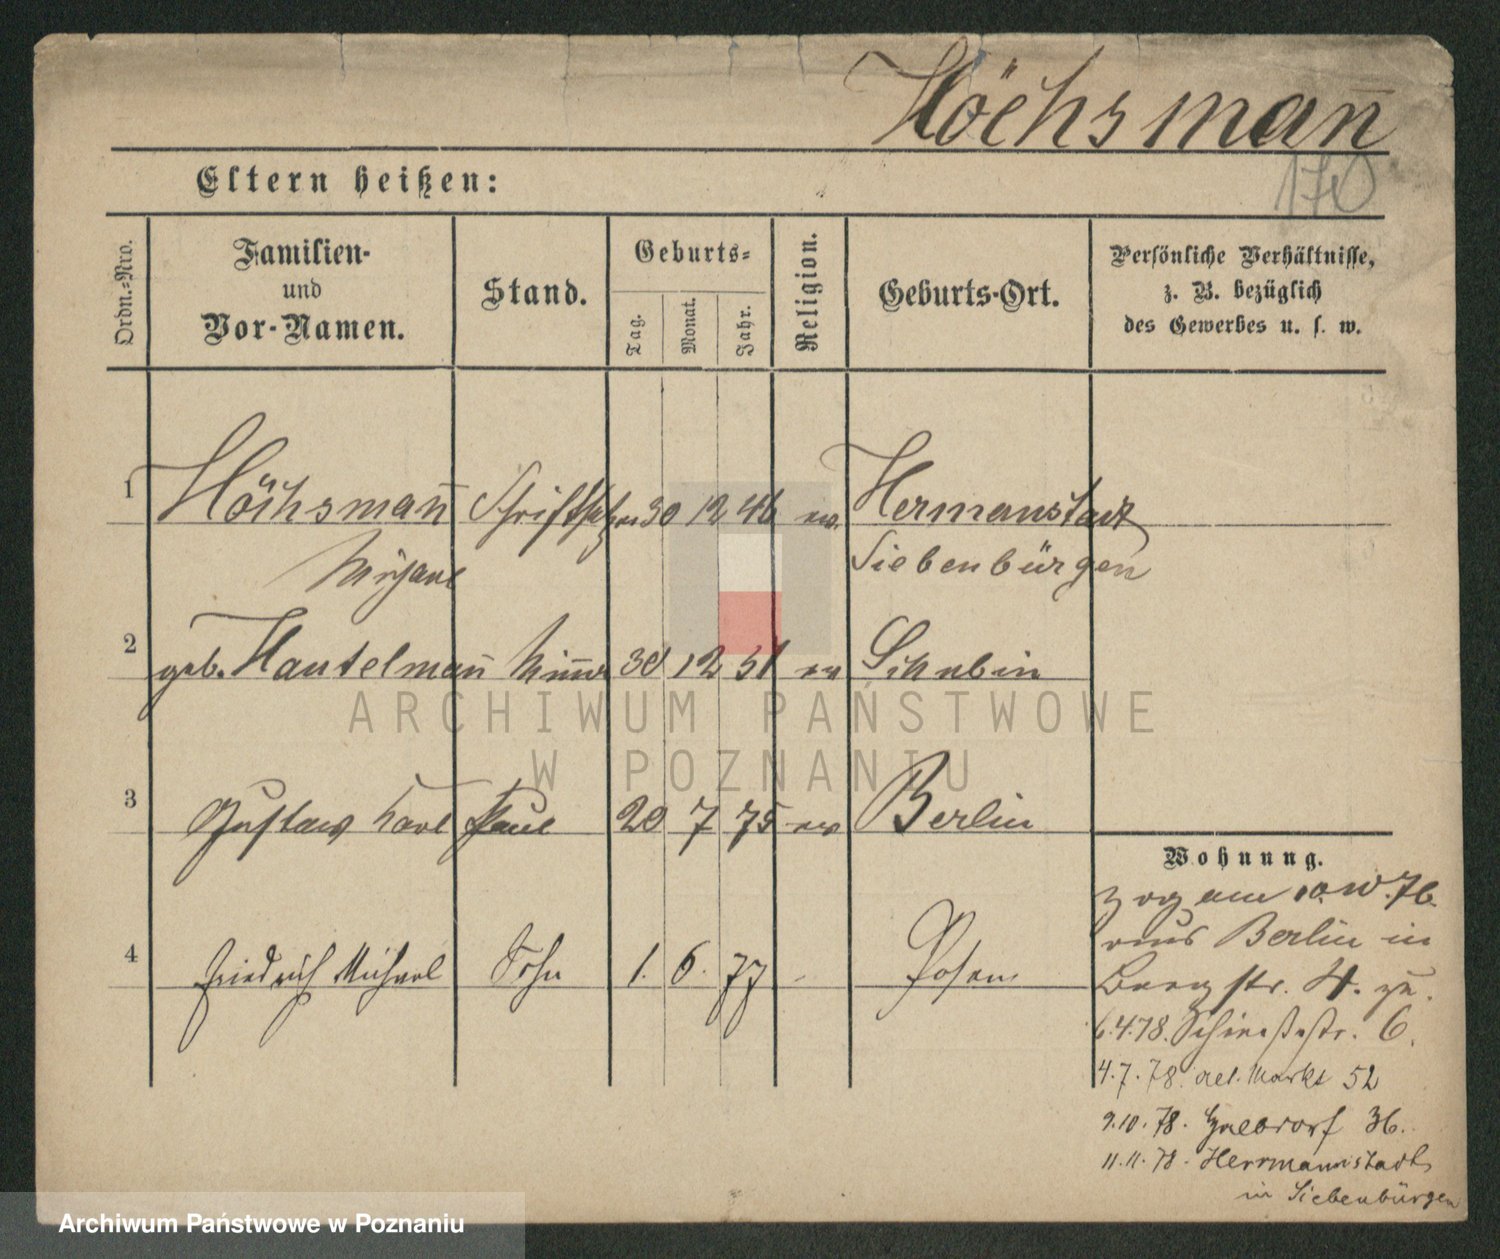 Höchsmañ
170
Eltern heißen:
Ordn.-Nro.
Familien-
und
Vor-Namen.
Stand.
Geburts-
Tag.
Monat.
Jahr.
Religion.
Geburts-Ort.
Persönliche Verhältnisse,
z. B. bezüglich
des Gewerbes u. s. w.
1 Höchsmañ Schriftsetzer 30 12 46 ev. Hermanstadt
Michael Siebenbürgen
2 geb. Hantelmañ 30 12 51 ev Schubin
3 Gustav Karl Paul 20 7 75 ev Berlin
4 Friedrich Michael Sohn 1. 6. 77 - Posen
Wohnung.
zog am 10. 76.
aus Berlin in
Bergstr. 4. zu.
6.4.78. Schießstr. 6.
4.7.78. alt. Markt 52
9.10.78. Halbdorf 36.
11.11.78. Herrmannstadt
in Siebenbürgen
ARCHIWUM PAŃSTWOWE
W POZNANIU
Archiwum Państwowe w Poznaniu